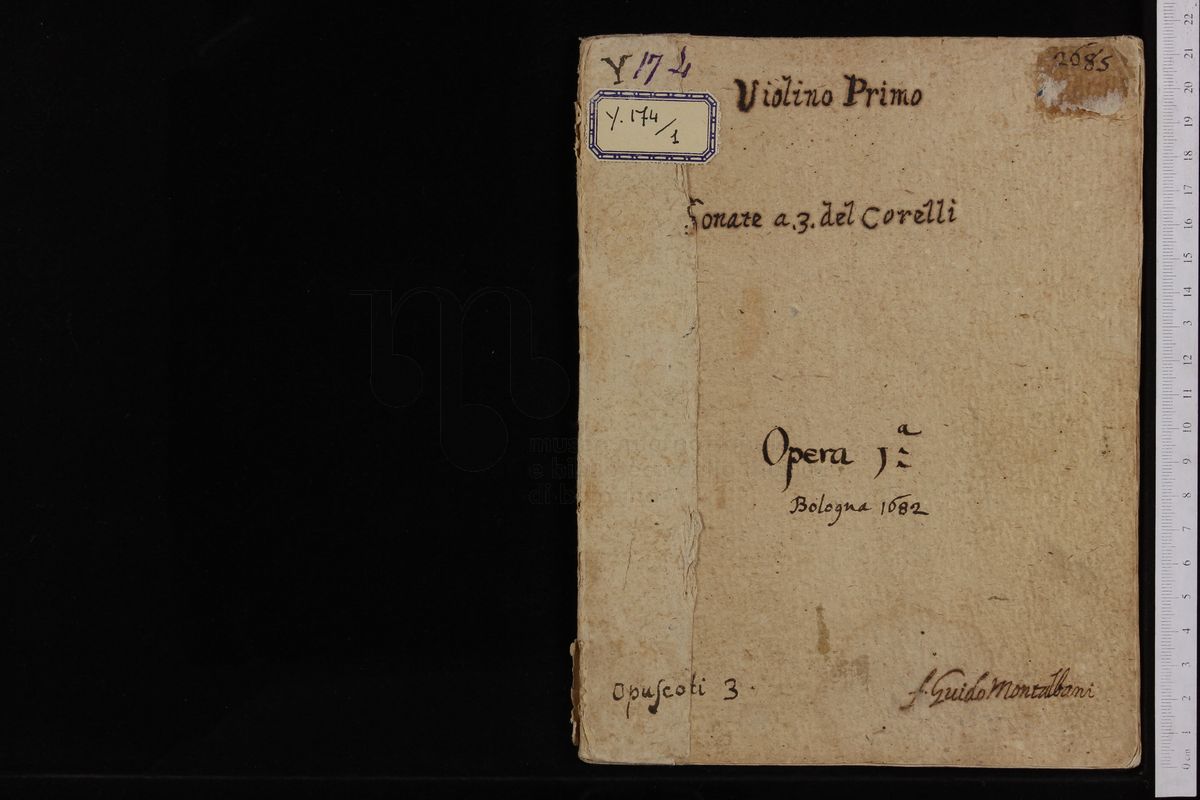 Y 174
Y. 174/1
2685
Violino Primo
Sonate a.3. del Corelli
Opera 1ª
Bologna 1682
Opuscoli 3.
f. Guido Montalbani